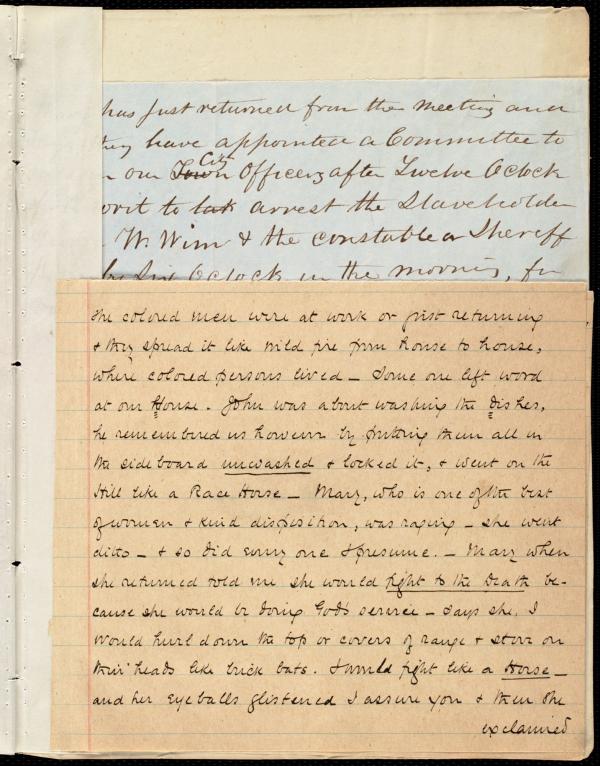 has just returned from the meeting and
they have appointed a Committee to
our Town City Officers after Twelve Oclock
writ to tak arrest the Slaveholder
W. Wim & the constable or Sheriff
by Six Oclock in the morning, for
the colored men were at work or just returning
& they spread it like wild fire from house to house,
where colored persons lived – Some one left word
at our House. John was about washing the dishes,
he remembered us however by putting them all in
the sideboard unwashed & locked it, & went on the
Hill like a Race Horse – Mary, who is one of the best
of women & kind disposition, was raging – she went
ditto – & so did every one I presume. – Mary when
she returned told me she would fight to the Death be-
cause she would be doing God's service – says she, I
would hurl down the top or covers of range & stove on
their heads like brick bats. I would fight like a Horse –
and her eyeballs glistened I assure you & then she
exclaimed